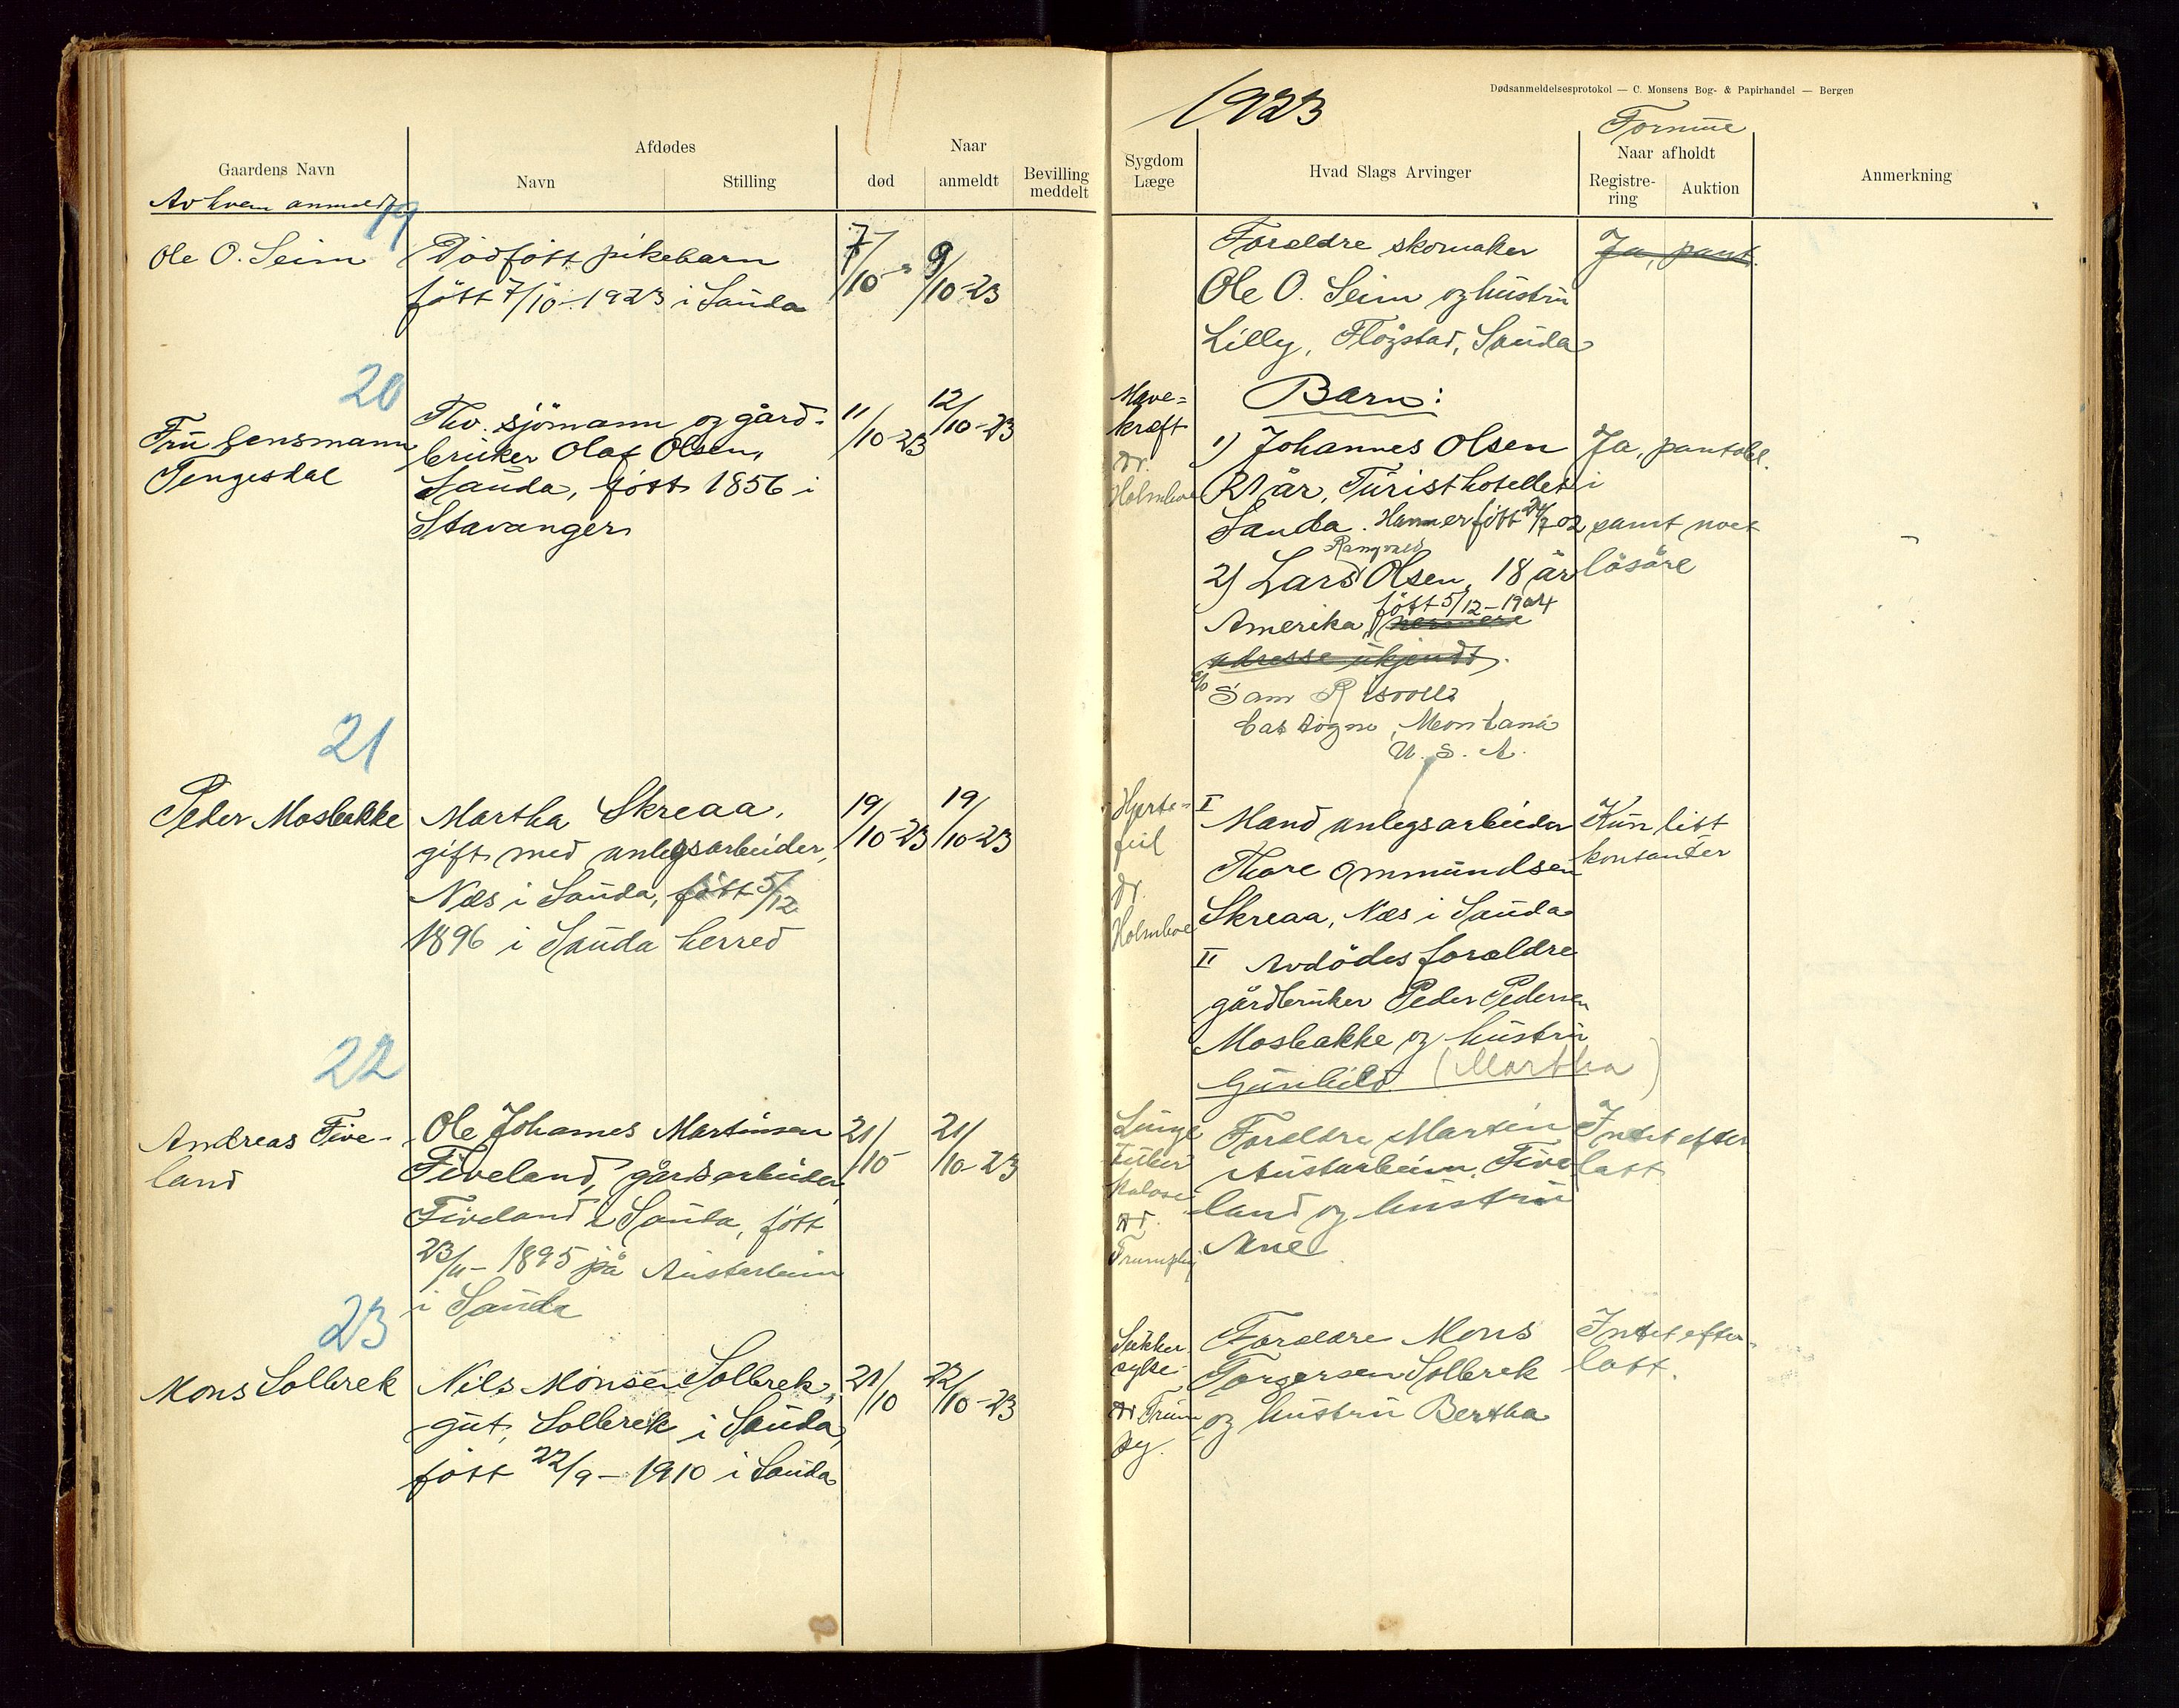 1923
Dødsanmeldelsesprotokol — C. Monsens Bog- & Papirhandel — Bergen
Gaardens Navn
Av hvem anmeldt
Afdødes
Navn
Stilling
Naar
død
anmeldt
Bevilling
meddelt
Sygdom
Læge
Hvad Slags Arvinger
Formue
Naar afholdt
Registre-
ring
Auktion
Anmerkning
19
Ole O. Seim
Dödfött pikebarn
fött 7/10-1923 i Sauda
7/10
9/10-23
Foreldre skomaker
Ole O. Seim og hustru
Lilly, Flögstad, Sauda
Ja, pant.
20
Fru lensmann
Tengesdal
Fhv. sjömann og gård-
bruker Olaf Olsen,
Sauda, fött 1856 i
Stavanger
11/10-23
12/10-23
Mave-
kreft
Dr.
Holmboe
Barn:
1) Johannes Olsen
21 år, Turisthotellet i
Sauda. Han er fött 24/7 02
Rangvald
2) Lars Olsen, 18 år
fött 5/12-1904
Amerika, nermere
adresse ukjendt.
Sam
Montana
U.S.A.
Ja, pantobl.
samt noet
lösöre
21
Peder Mosbakke
Martha Skreaa,
gift med anlegsarbeider,
Næs i Sauda, fött 5/12
1896 i Sauda herred
19/10-23
19/10-23
Hjerte-
feil
Dr.
Holmboe
I Mand anlegsarbeider
Thore Ommundsen
Skreaa, Næs i Sauda
II Avdödes foreldre
gårdbruker Peder Pedersen
Mosbakke og hustru
Gunhild (Martha)
Kun litt
kontanter
22
Andreas Five-
land
Ole Johannes Martinsen
Fiveland, gårdsarbeider,
Fiveland i Sauda, fött
23/11-1895 på Austarheim
i Sauda
21/10
21/10-23
Lunge
tuber
kulose
Dr.
Trumpy
Foreldre Martin
Austarheim, Five
land og hustru
Ane
Intet efter
latt
23
Mons Solbrek
Nils Monsen Solbrek,
gut, Solbrek i Sauda,
fött 22/9-1910 i Sauda
21/10
22/10-23
Sukker
syke
Dr Trum
py.
Foreldre Mons
Torgersen Solbrek
og hustru Bertha
Intet efter-
latt.